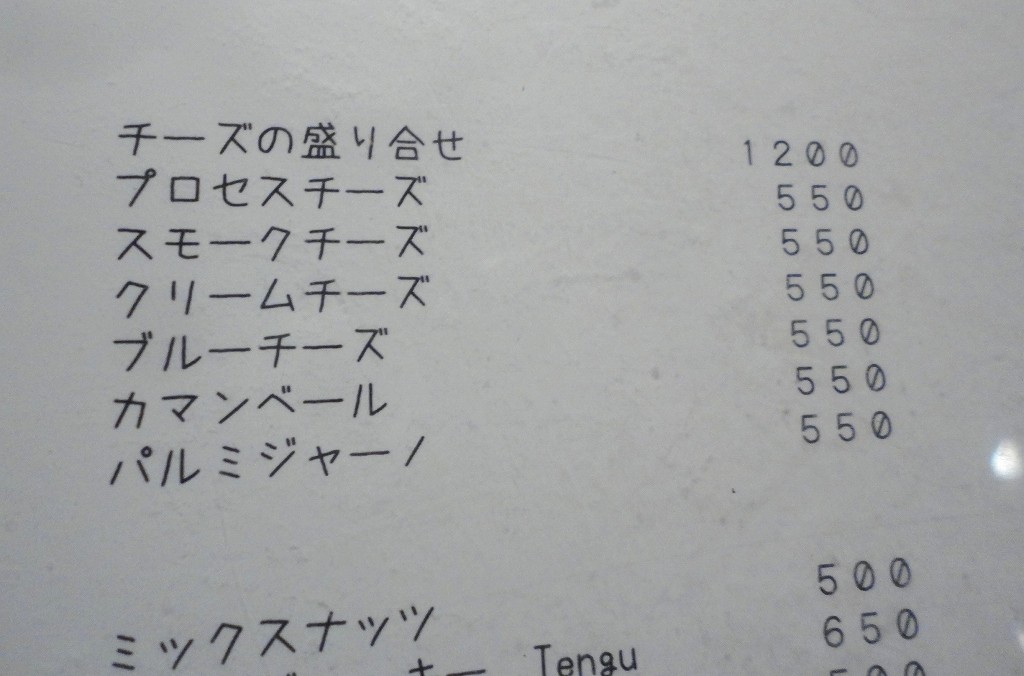 チーズの盛り合せ 1200
プロセスチーズ 550
スモークチーズ 550
クリームチーズ 550
ブルーチーズ 550
カマンベール 550
パルミジャーノ 550
ミックスナッツ 500
Tengu 650